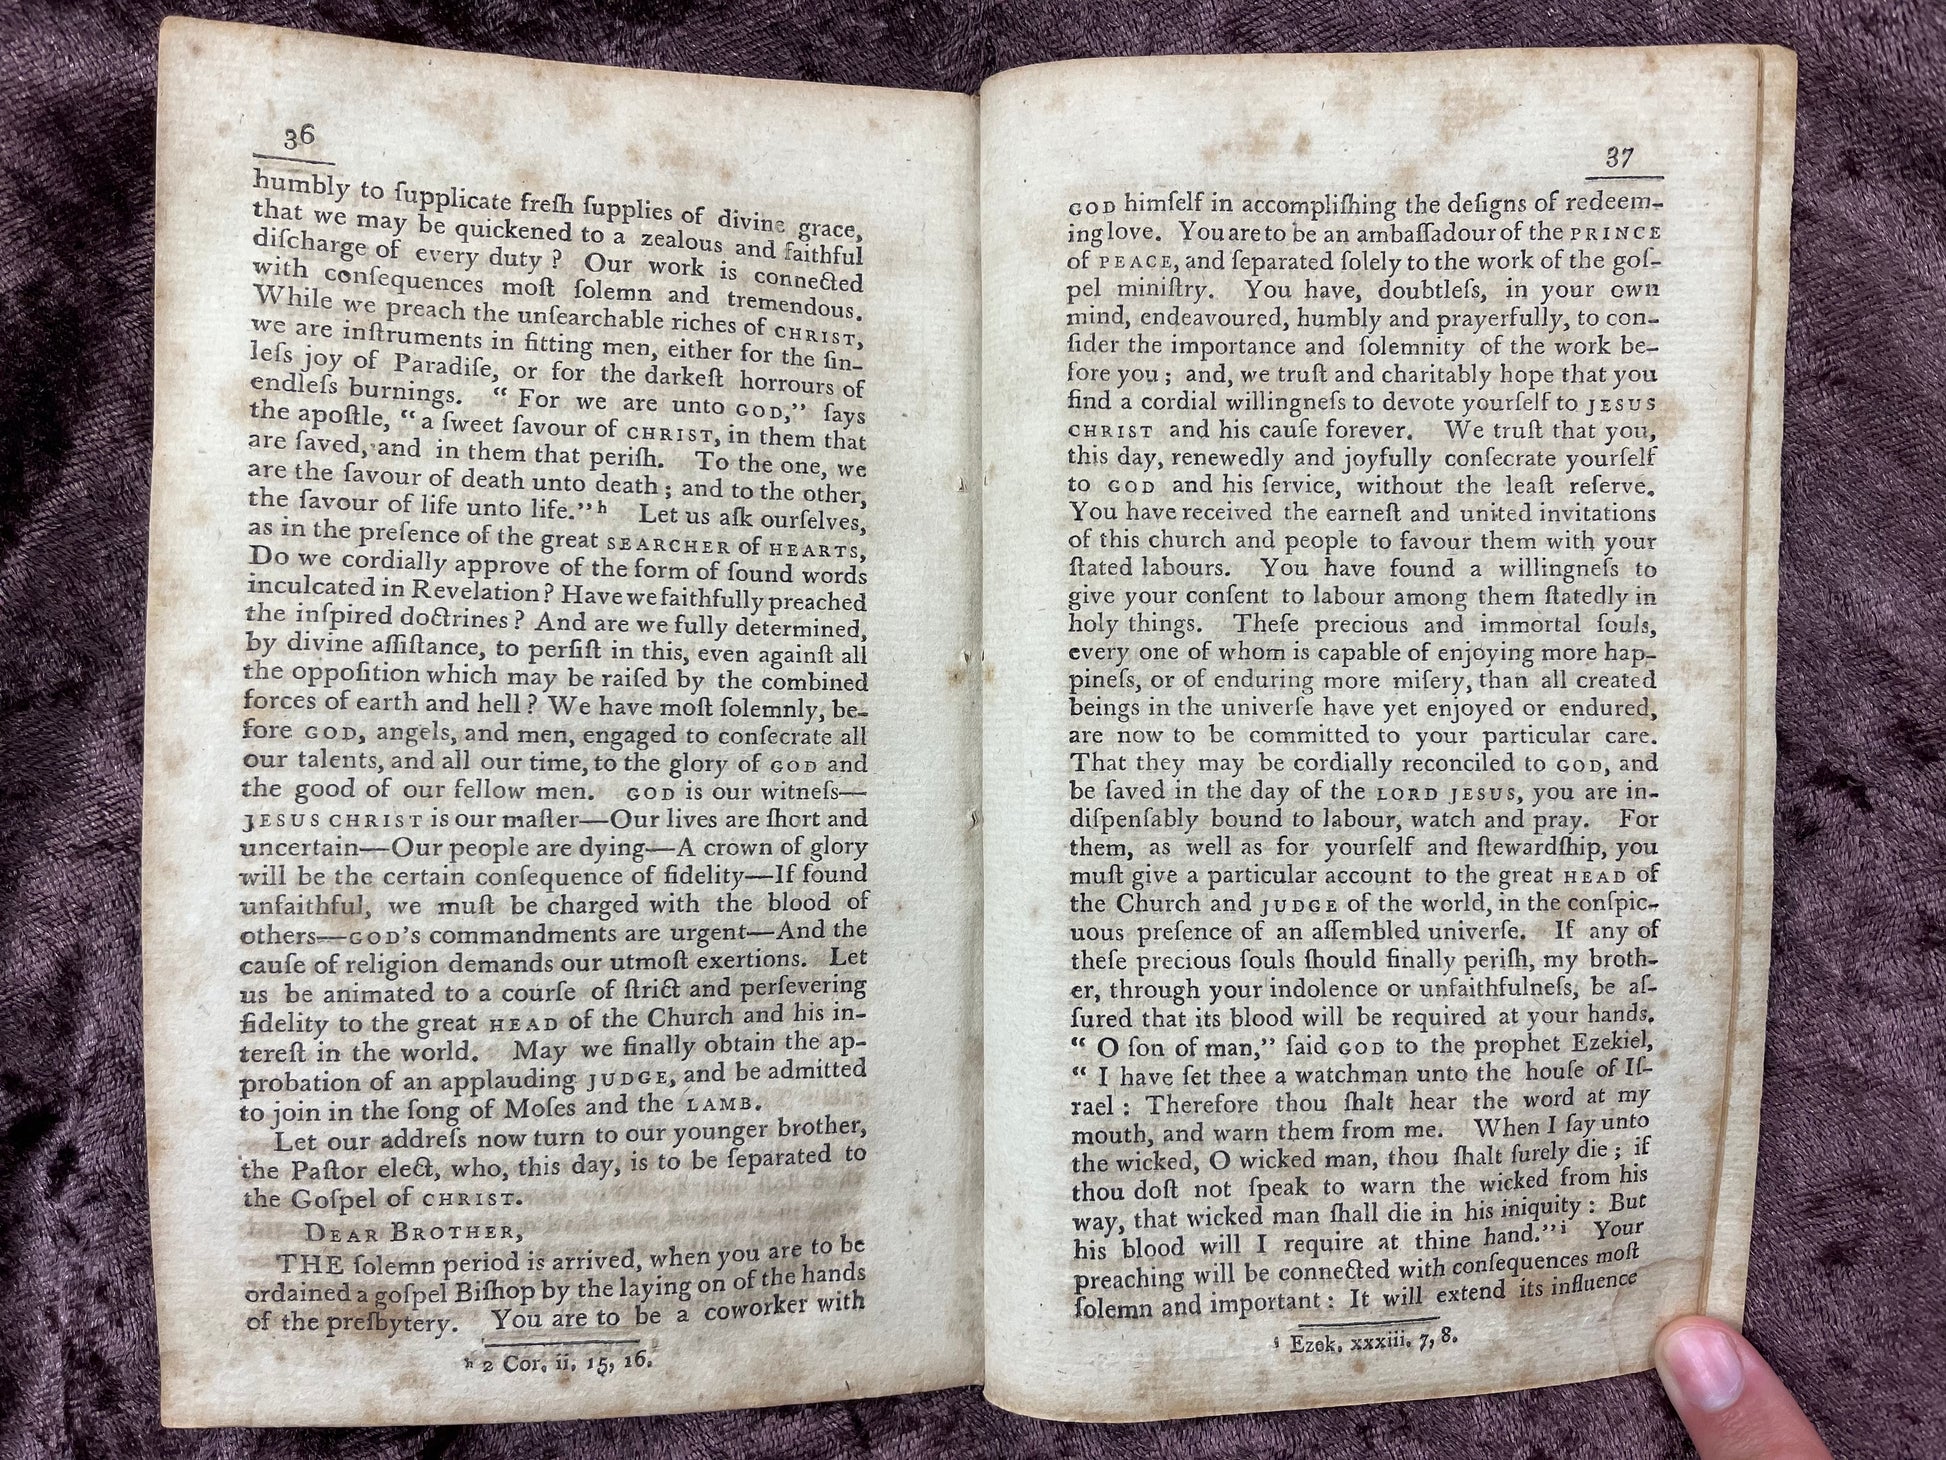 36
humbly to ſupplicate freſh ſupplies of divine grace,
that we may be quickened to a zealous and faithful
diſcharge of every duty? Our work is connected
with conſequences moſt ſolemn and tremendous.
While we preach the unſearchable riches of CHRIST,
we are inſtruments in fitting men, either for the ſin-
leſs joy of Paradiſe, or for the darkeſt horrours of
endleſs burnings. “For we are unto GOD,” ſays
the apoſtle, “a ſweet ſavour of CHRIST, in them that
are ſaved, and in them that periſh. To the one, we
are the ſavour of death unto death; and to the other,
the ſavour of life unto life.”h Let us aſk ourſelves,
as in the preſence of the great SEARCHER of HEARTS,
Do we cordially approve of the form of ſound words
inculcated in Revelation? Have we faithfully preached
the inſpired doctrines? And are we fully determined,
by divine aſſiſtance, to perſiſt in this, even againſt all
the oppoſition which may be raiſed by the combined
forces of earth and hell? We have moſt ſolemnly, be-
fore GOD, angels, and men, engaged to conſecrate all
our talents, and all our time, to the glory of GOD and
the good of our fellow men. GOD is our witneſs—
JESUS CHRIST is our maſter—Our lives are ſhort and
uncertain—Our people are dying—A crown of glory
will be the certain conſequence of fidelity—If found
unfaithful, we muſt be charged with the blood of
others—GOD'S commandments are urgent—And the
cauſe of religion demands our utmoſt exertions. Let
us be animated to a courſe of ſtrict and perſevering
fidelity to the great HEAD of the Church and his in-
tereſt in the world. May we finally obtain the ap-
probation of an applauding JUDGE, and be admitted
to join in the ſong of Moſes and the LAMB.
Let our addreſs now turn to our younger brother,
the Paſtor elect, who, this day, is to be ſeparated to
the Goſpel of CHRIST.
DEAR BROTHER,
THE ſolemn period is arrived, when you are to be
ordained a goſpel Biſhop by the laying on of the hands
of the preſbytery. You are to be a coworker with
h 2 Cor. ii. 15, 16.
37
GOD himſelf in accompliſhing the deſigns of redeem-
ing love. You are to be an ambaſſadour of the PRINCE
of PEACE, and ſeparated ſolely to the work of the goſ-
pel miniſtry. You have, doubtleſs, in your own
mind, endeavoured, humbly and prayerfully, to con-
ſider the importance and ſolemnity of the work be-
fore you; and, we truſt and charitably hope that you
find a cordial willingneſs to devote yourſelf to JESUS
CHRIST and his cauſe forever. We truſt that you,
this day, renewedly and joyfully conſecrate yourſelf
to GOD and his ſervice, without the leaſt reſerve.
You have received the earneſt and united invitations
of this church and people to favour them with your
ſtated labours. You have found a willingneſs to
give your conſent to labour among them ſtatedly in
holy things. Theſe precious and immortal ſouls,
every one of whom is capable of enjoying more hap-
pineſs, or of enduring more miſery, than all created
beings in the univerſe have yet enjoyed or endured,
are now to be committed to your particular care.
That they may be cordially reconciled to GOD, and
be ſaved in the day of the LORD JESUS, you are in-
diſpenſably bound to labour, watch and pray. For
them, as well as for yourſelf and ſtewardſhip, you
muſt give a particular account to the great HEAD of
the Church and JUDGE of the world, in the conſpic-
uous preſence of an aſſembled univerſe. If any of
theſe precious ſouls ſhould finally periſh, my broth-
er, through your indolence or unfaithfulneſs, be aſ-
ſured that its blood will be required at your hands.
“O ſon of man,” ſaid GOD to the prophet Ezekiel,
“I have ſet thee a watchman unto the houſe of Iſ-
rael: Therefore thou ſhalt hear the word at my
mouth, and warn them from me. When I ſay unto
the wicked, O wicked man, thou ſhalt ſurely die; if
thou doſt not ſpeak to warn the wicked from his
way, that wicked man ſhall die in his iniquity: But
his blood will I require at thine hand.”i Your
preaching will be connected with conſequences moſt
ſolemn and important: It will extend its influence
i Ezek. xxxiii. 7, 8.